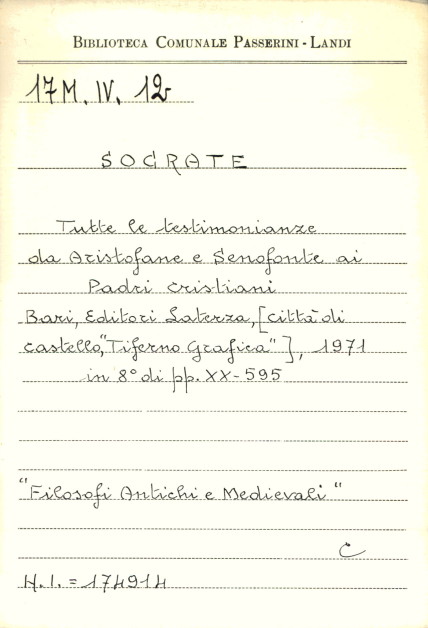 BIBLIOTECA COMUNALE PASSERINI - LANDI
17 M. IV. 12
SOCRATE
Tutte le testimonianze
da Aristofane e Senofonte ai
Padri cristiani
Bari, Editori Laterza, [città di
castello, "Tiferno Grafica"], 1971
in 8° di pp. XX-595
"Filosofi Antichi e Medievali"
C
H.I. = 174914